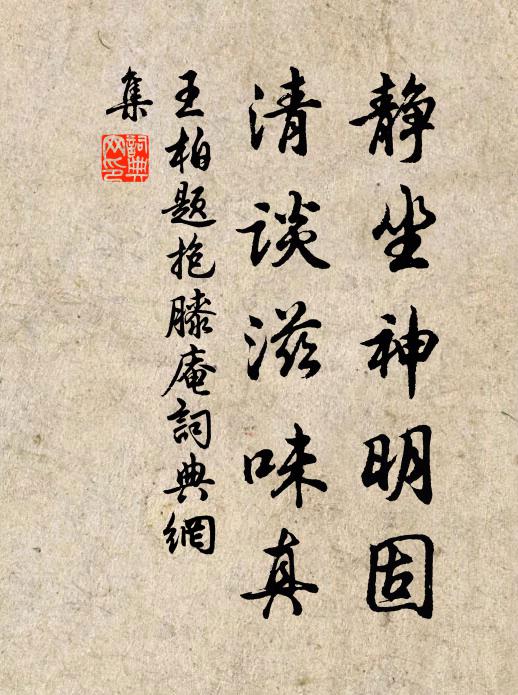 静坐神明固
清談滋味真
王柏題抱膝庵詞典網
集
詞典
网印